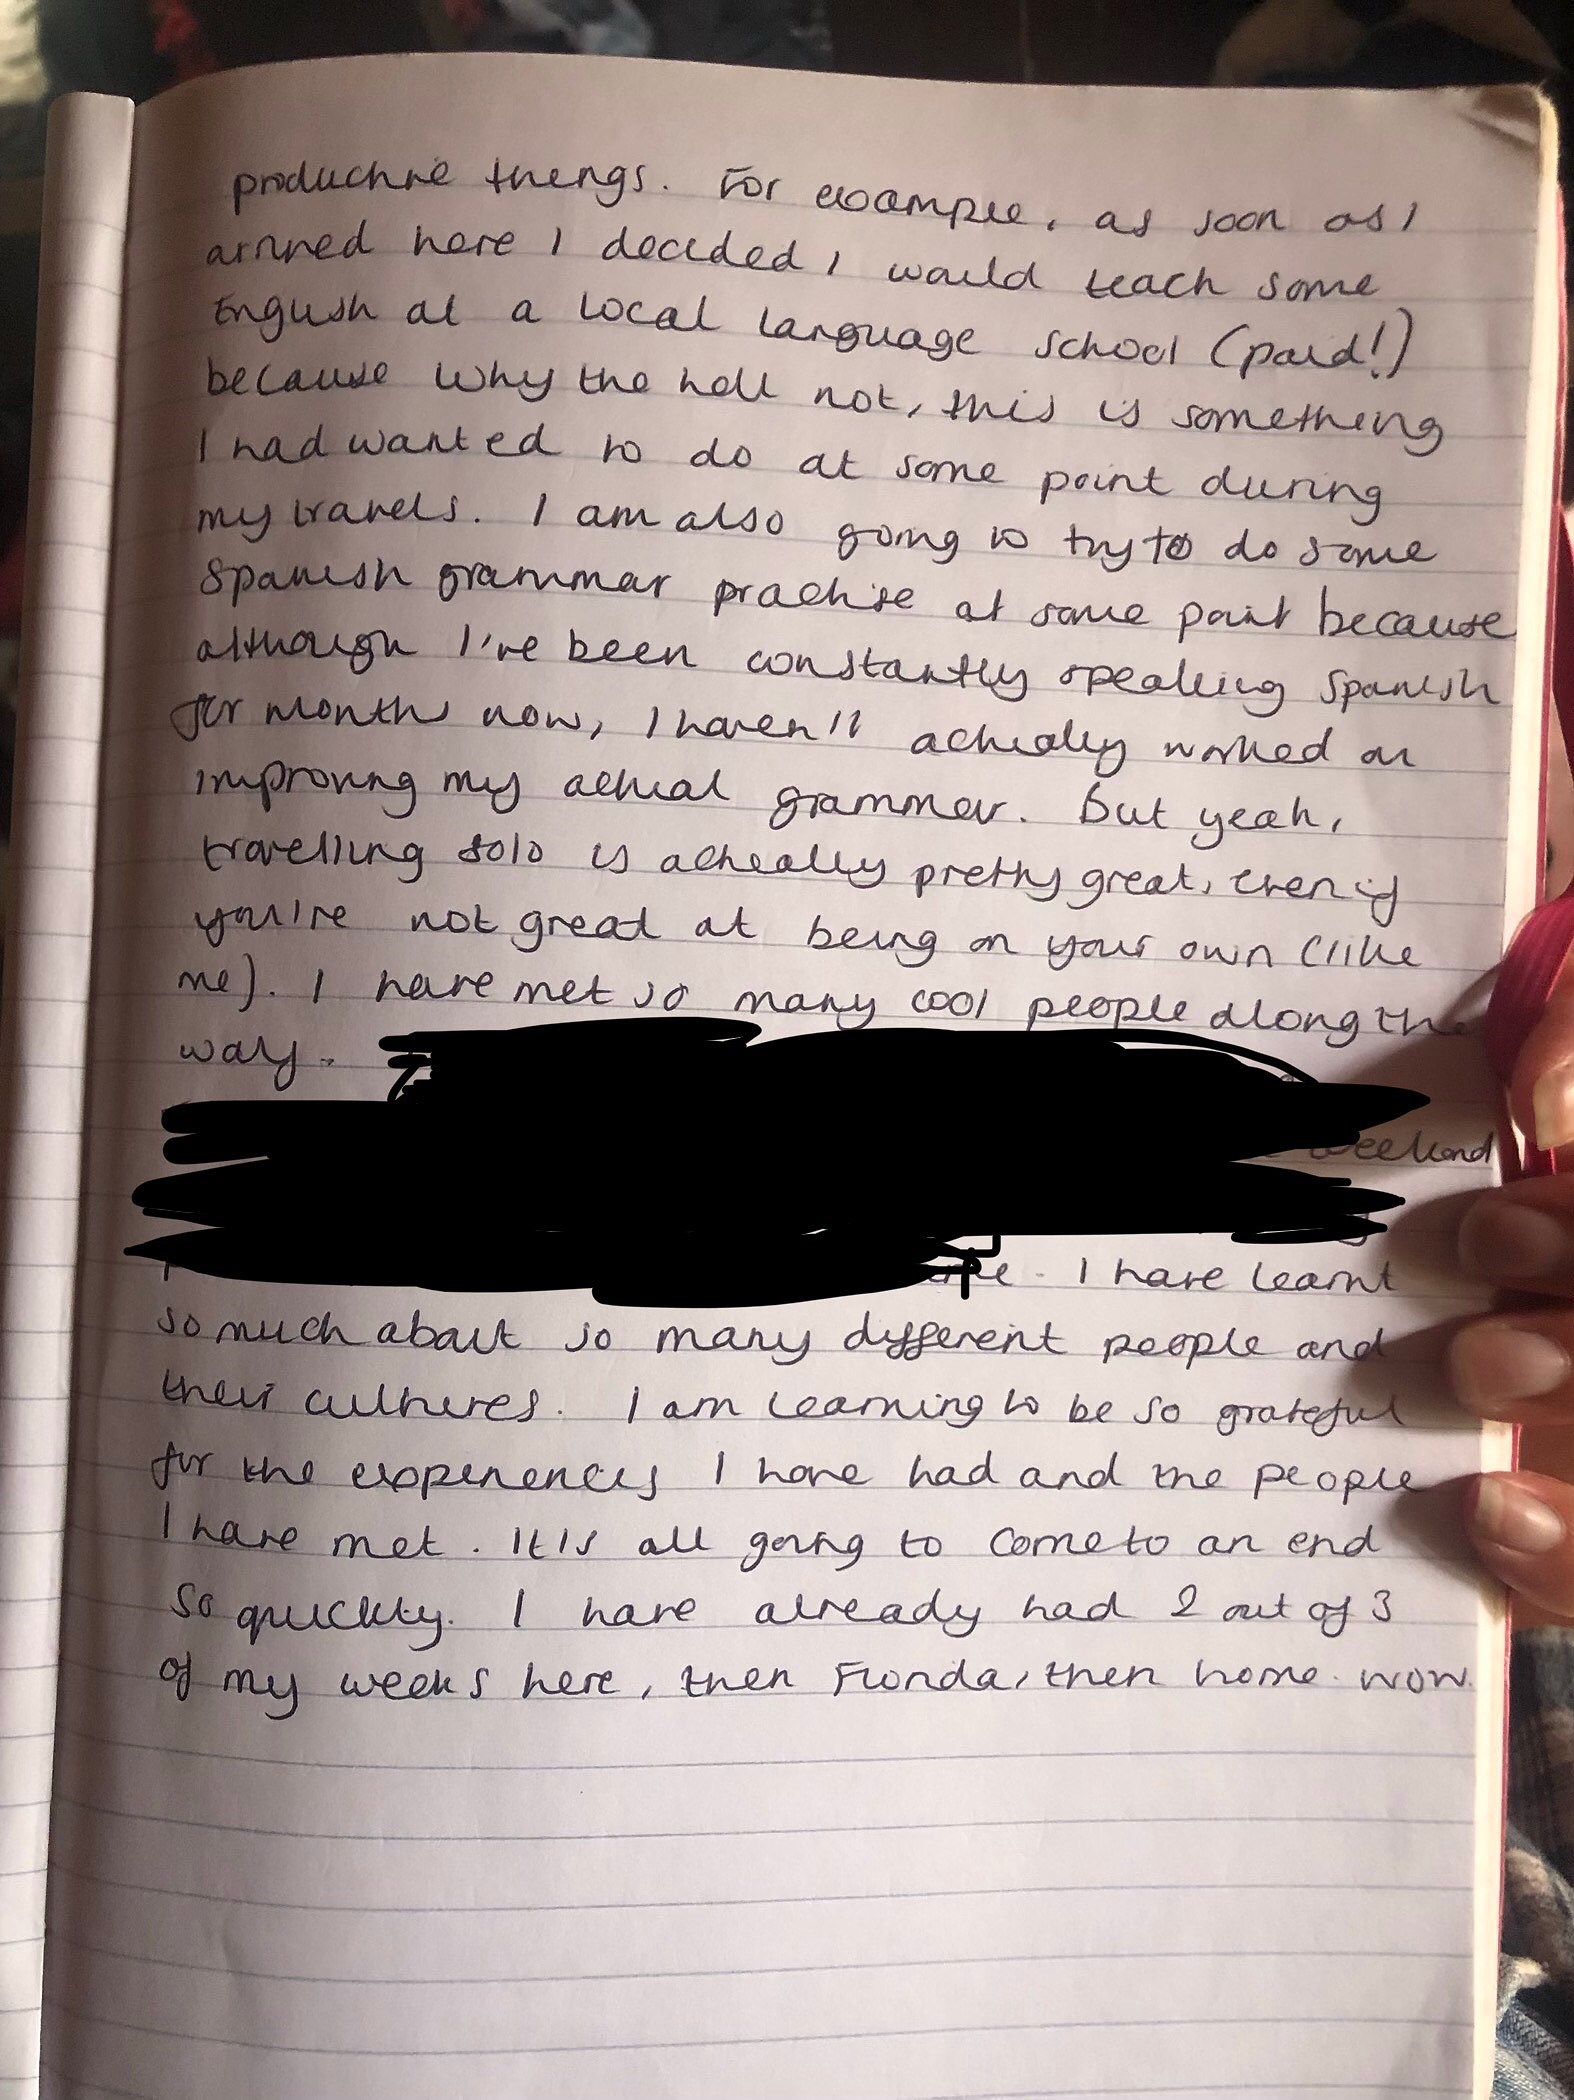 productive things. For example, as soon as I
arrived here I decided I would teach some
English at a local language school (paid!)
because why the hell not, this is something
I had wanted to do at some point during
my travels. I am also going to try to do some
Spanish grammar practise at some point because
although I've been constantly speaking Spanish
for months now, I haven't actually worked on
improving my actual grammar. But yeah,
travelling solo is actually pretty great, even if
you're not great at being on your own (like
me). I have met so many cool people along the
way.
weekend
I have learnt
so much about so many different people and
their cultures. I am learning to be so grateful
for the experiences I have had and the people
I have met. It's all going to come to an end
so quickly. I have already had 2 out of 3
of my weeks here, then Florida, then home. wow.